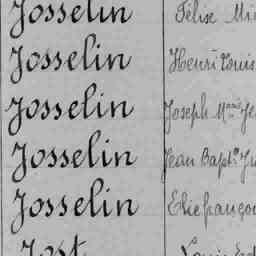 Josselin Félise Mi
Josselin Henri Louis
Josselin Joseph M
Josselin Jean Bapt
Josselin Elie françoi
Jost Louis